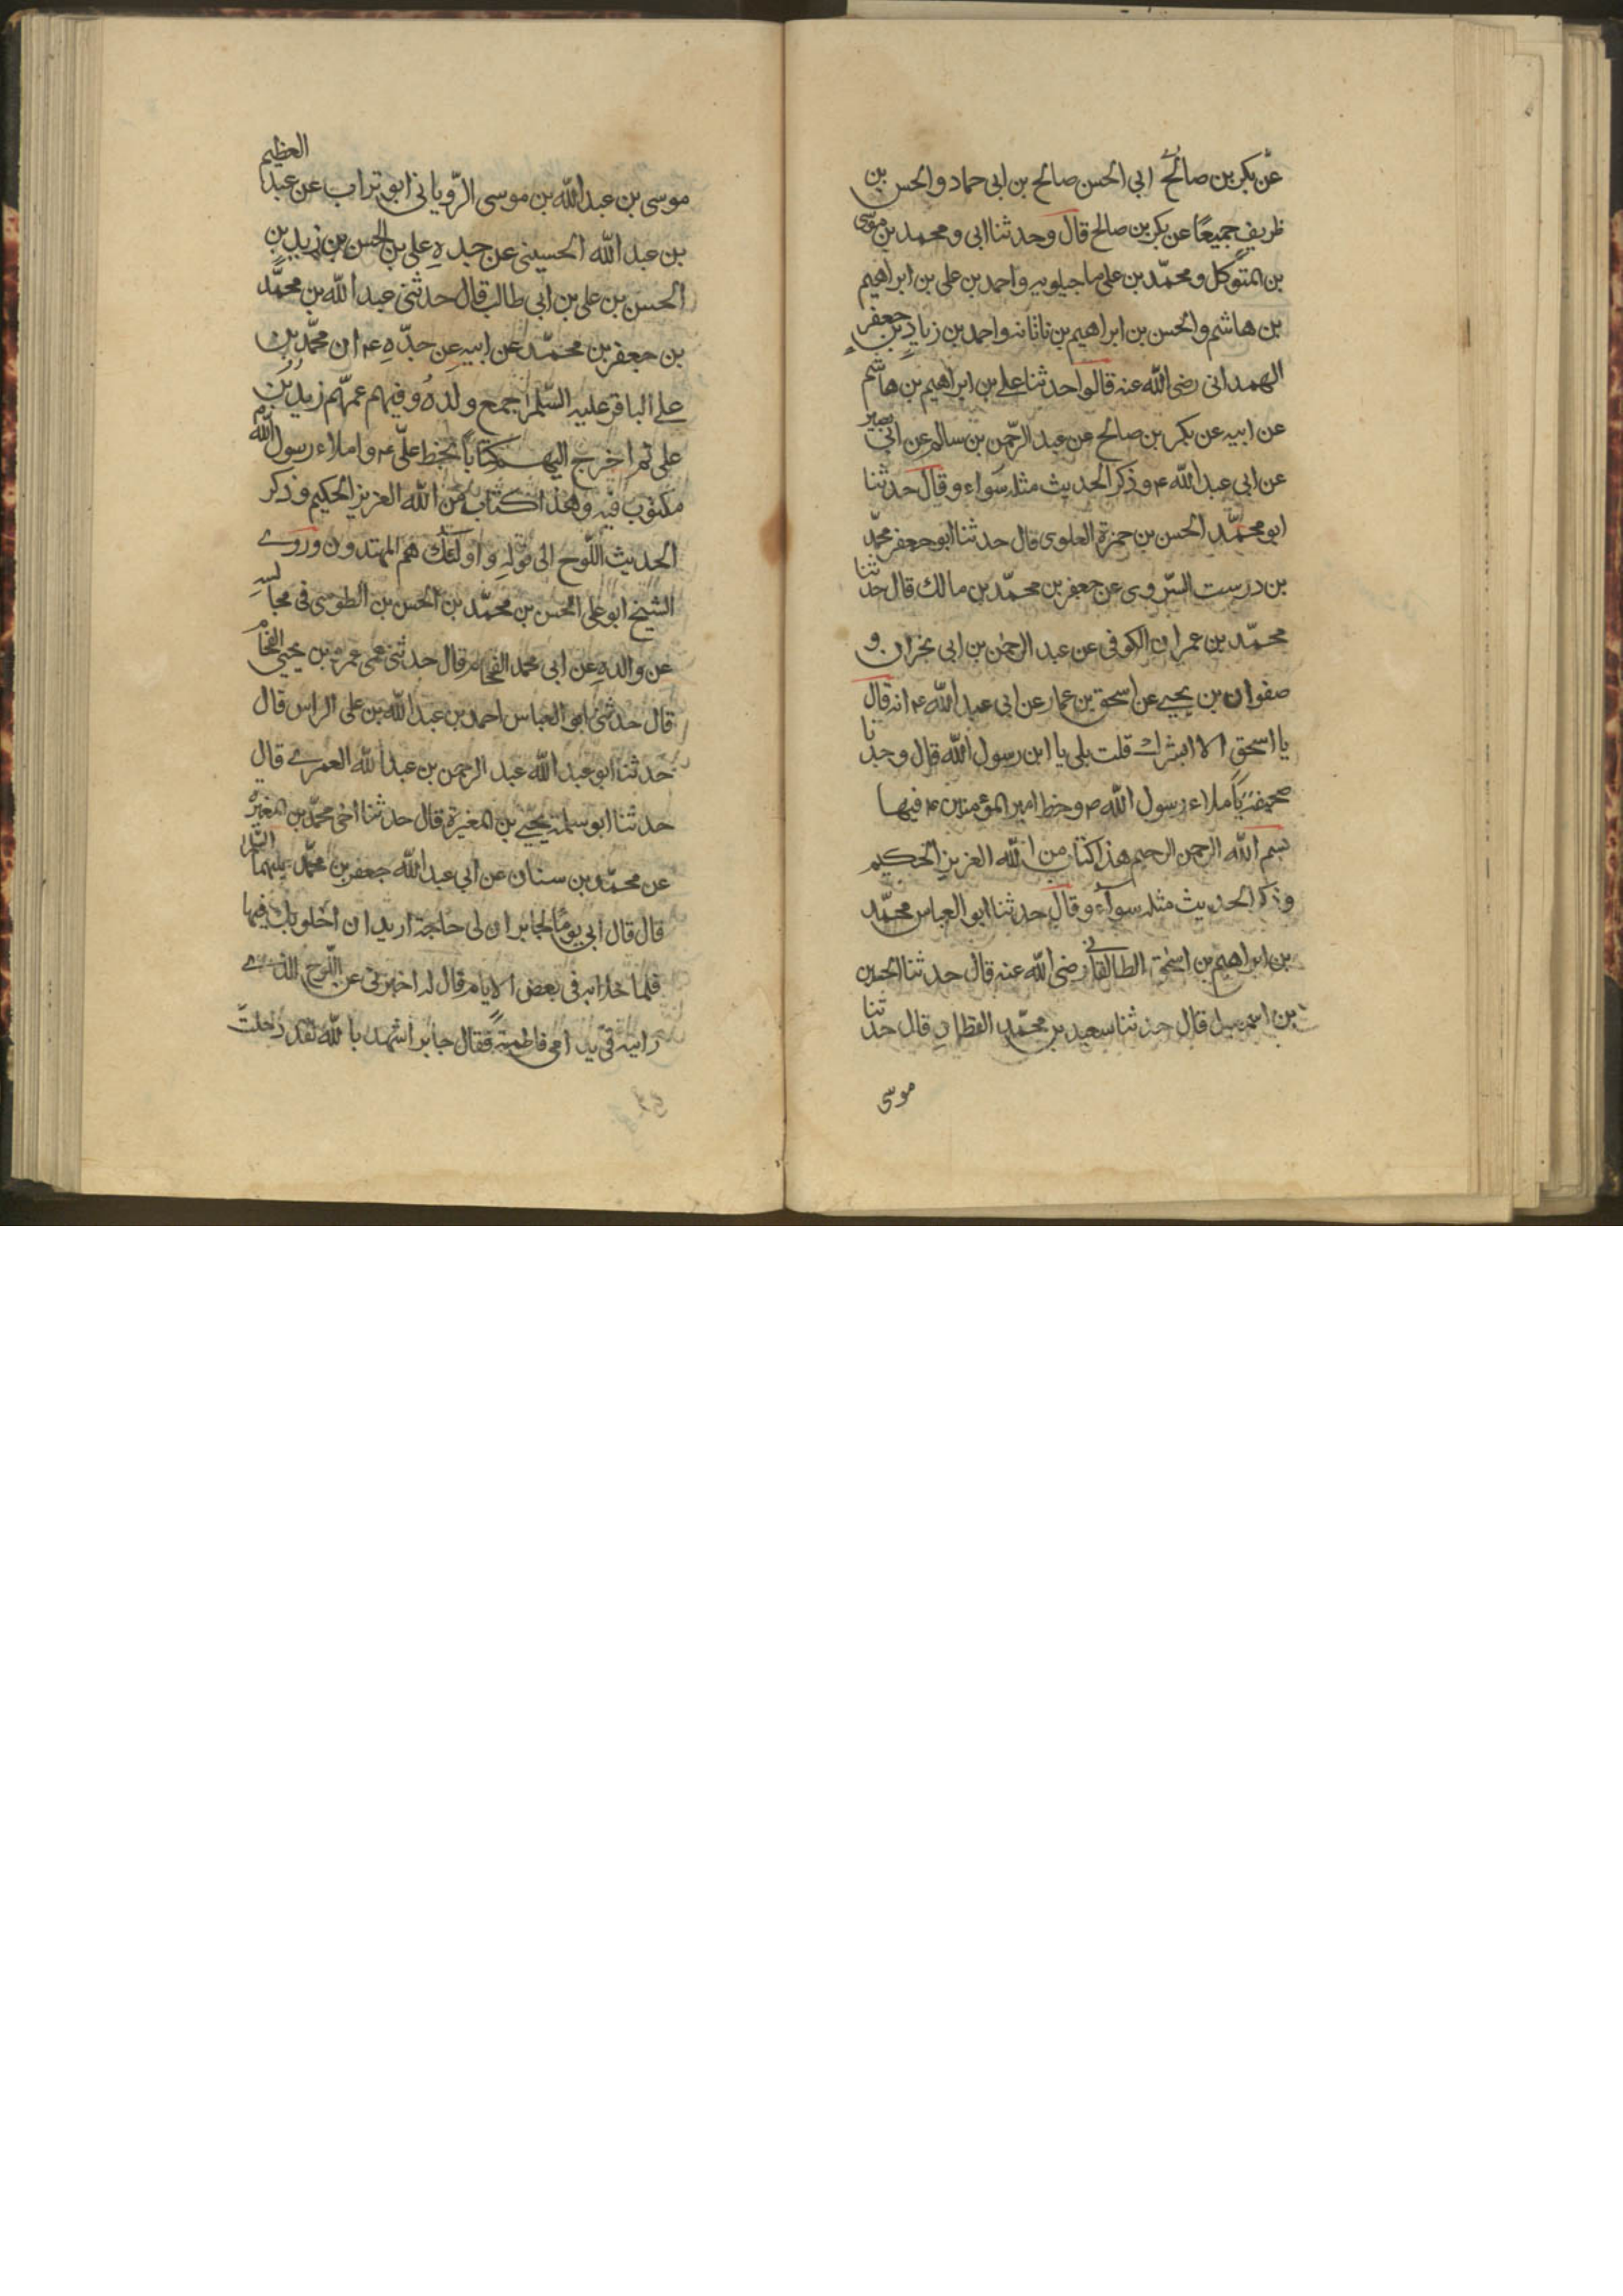 عن بكر بن صالح ابي الحسن صالح بن ابي حماد والحسن بن
ظريف جميعًا عن بكر بن صالح قال وحدثنا ابي ومحمد بن موسى
بن المتوكل ومحمّد بن على ماجيلويه واحمد بن على بن ابراهيم
بن هاشم والحسن بن ابراهيم بن ناتانه واحمد بن زياد بن جعفر
الهمدانى رضى الله عنه قالوا حدثنا على بن ابراهيم بن هاشم
عن ابيه عن بكر بن صالح عن عبد الرّحمن بن سالم عن ابي بصير
عن ابى عبد الله ع وذكر الحديث مثله سواء وقال حدثنا
ابو محمّد الحسن بن حمزة العلوى قال حدثنا ابو جعفر محمّد
بن درست السّروى عن جعفر بن محمّد بن مالك قال حدثنا
محمّد بن عمران الكوفى عن عبد الرحمن بن ابى نجران و
صفوان بن يحيى عن اسحق بن عمار عن ابى عبد الله ع انه قال
يا اسحق الا ابشرك قلت بلى يا ابن رسول الله قال وجدنا
صحيفة باملاء رسول الله ص وخط امير المؤمنين ع فيها
بسم الله الرحمن الرحيم هذا كتاب من الله العزيز الحكيم
وذكر الحديث مثله سوآء وقال حدثنا ابو العباس محمّد
بن ابراهيم بن اسحق الطالقانى رضى الله عنه قال حدثنا الحسين
بن اسمعيل قال حدثنا سعيد بن محمّد القطان قال حدثنا
موسى
موسى بن عبد الله بن موسى الرّويانى ابو تراب عن عبد العظيم
بن عبد الله الحسينى عن جده على بن الحسن بن زيد بن
الحسن بن على بن ابى طالب قال حدثنى عبد الله بن محمّد
بن جعفر بن محمّد عن ابيه عن جدّه ع ان محمّد بن
على الباقر عليه السّلم جمع ولده وفيهم عمّهم زيد بن
على ثم اخرج اليهم كتابًا بخط علىّ ع واملاء رسول الله ص
مكتوب فيه وهذا كتاب من الله العزيز الحكيم وذكر
الحديث اللّوح الى قوله واولئك هم المهتدون وروى
الشيخ ابو على الحسن بن محمّد بن الحسن بن الطوسى فى مجالسه
عن والده عن ابى محمد الفحام قال حدثنى عمى عمر بن يحيى الفحام
قال حدثنى ابو العباس احمد بن عبد الله بن على الراس قال
حدثنا ابو عبد الله عبد الرحمن بن عبد الله العمرى قال
حدثنا ابو سلمة يحيى بن المغيرة قال حدثنا اخى محمّد بن المغيرة
عن محمّد بن سنان عن ابى عبد الله جعفر بن محمّد عليهما السّلم
قال قال ابى يومًا لجابر ان لى حاجة اريد ان اخلو بك فيها
فلما خلا به فى بعض الايام قال له اخبرنى عن اللّوح الذى
رايته فى يد امى فاطمة فقال جابر اشهد بالله لقد دخلت